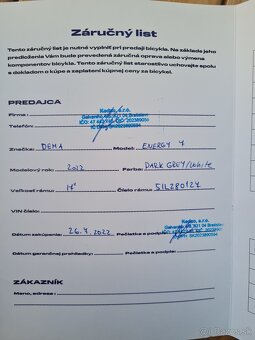 Záručný list
Tento záručný list je nutné vyplniť pri predaji bicykla. Na základe jeho
predloženia Vám bude prevedená záručná oprava alebo výmena
komponentov bicykla. Tento záručný list starostlivo uchovajte spolu
s dokladom o kúpe a zaplatení kúpnej ceny za bicykel.
PREDAJCA
Firma:
Telefón:
Značka: DEMA Model: ENERGY 7
Modelový rok: 2022 Farba: DARK GREY/WHITE
Veľkosť rámu: 17" Číslo rámu:
VIN číslo:
Dátum zakúpenia: 26.7.2022 Pečiatka a podpis:
Dátum garančnej prehliadky: Pečiatka a podpis:
ZÁKAZNÍK
Meno, adresa:
bazos.sk